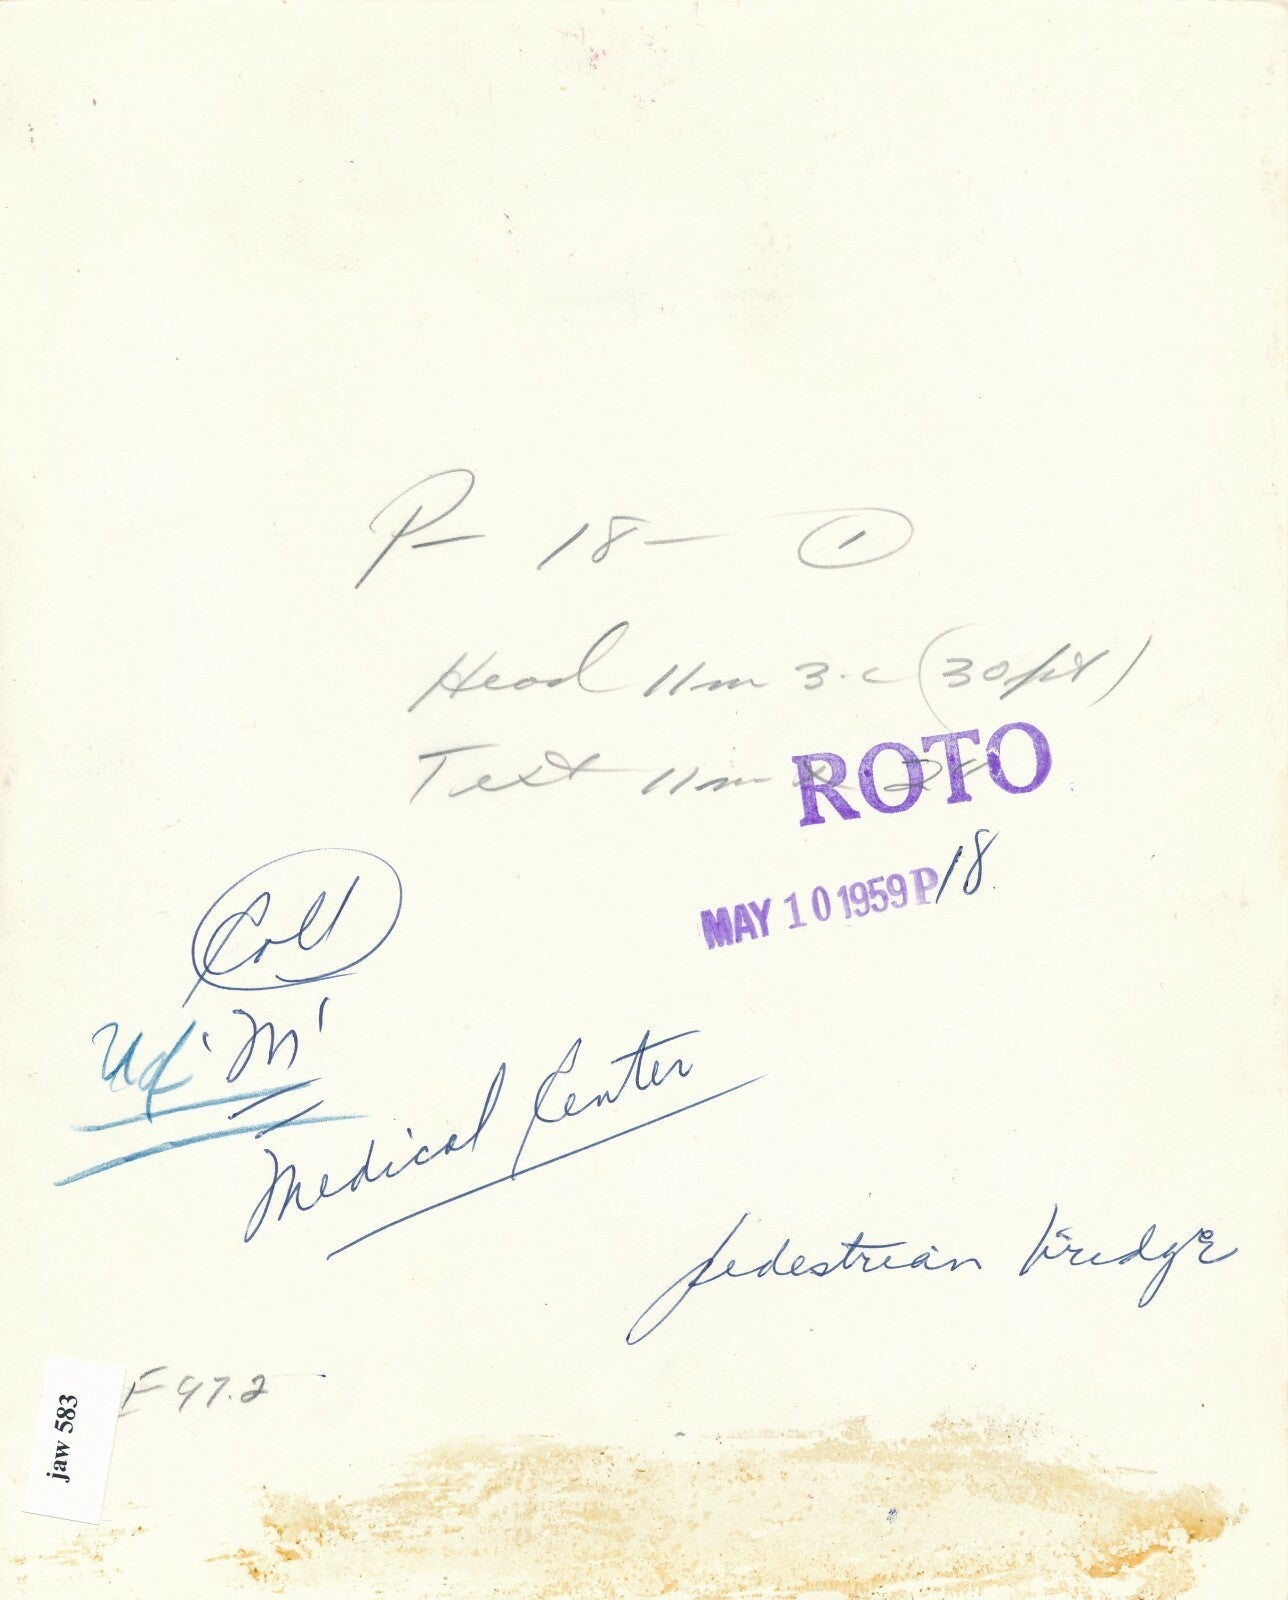 P- 18- 1
Head 11m 3.c (30pt)
Text 11m x 2c
ROTO
MAY 10 1959 P 18
Coll
U of 'M'
Medical Center
pedestrian bridge
F 97.2
jaw 583